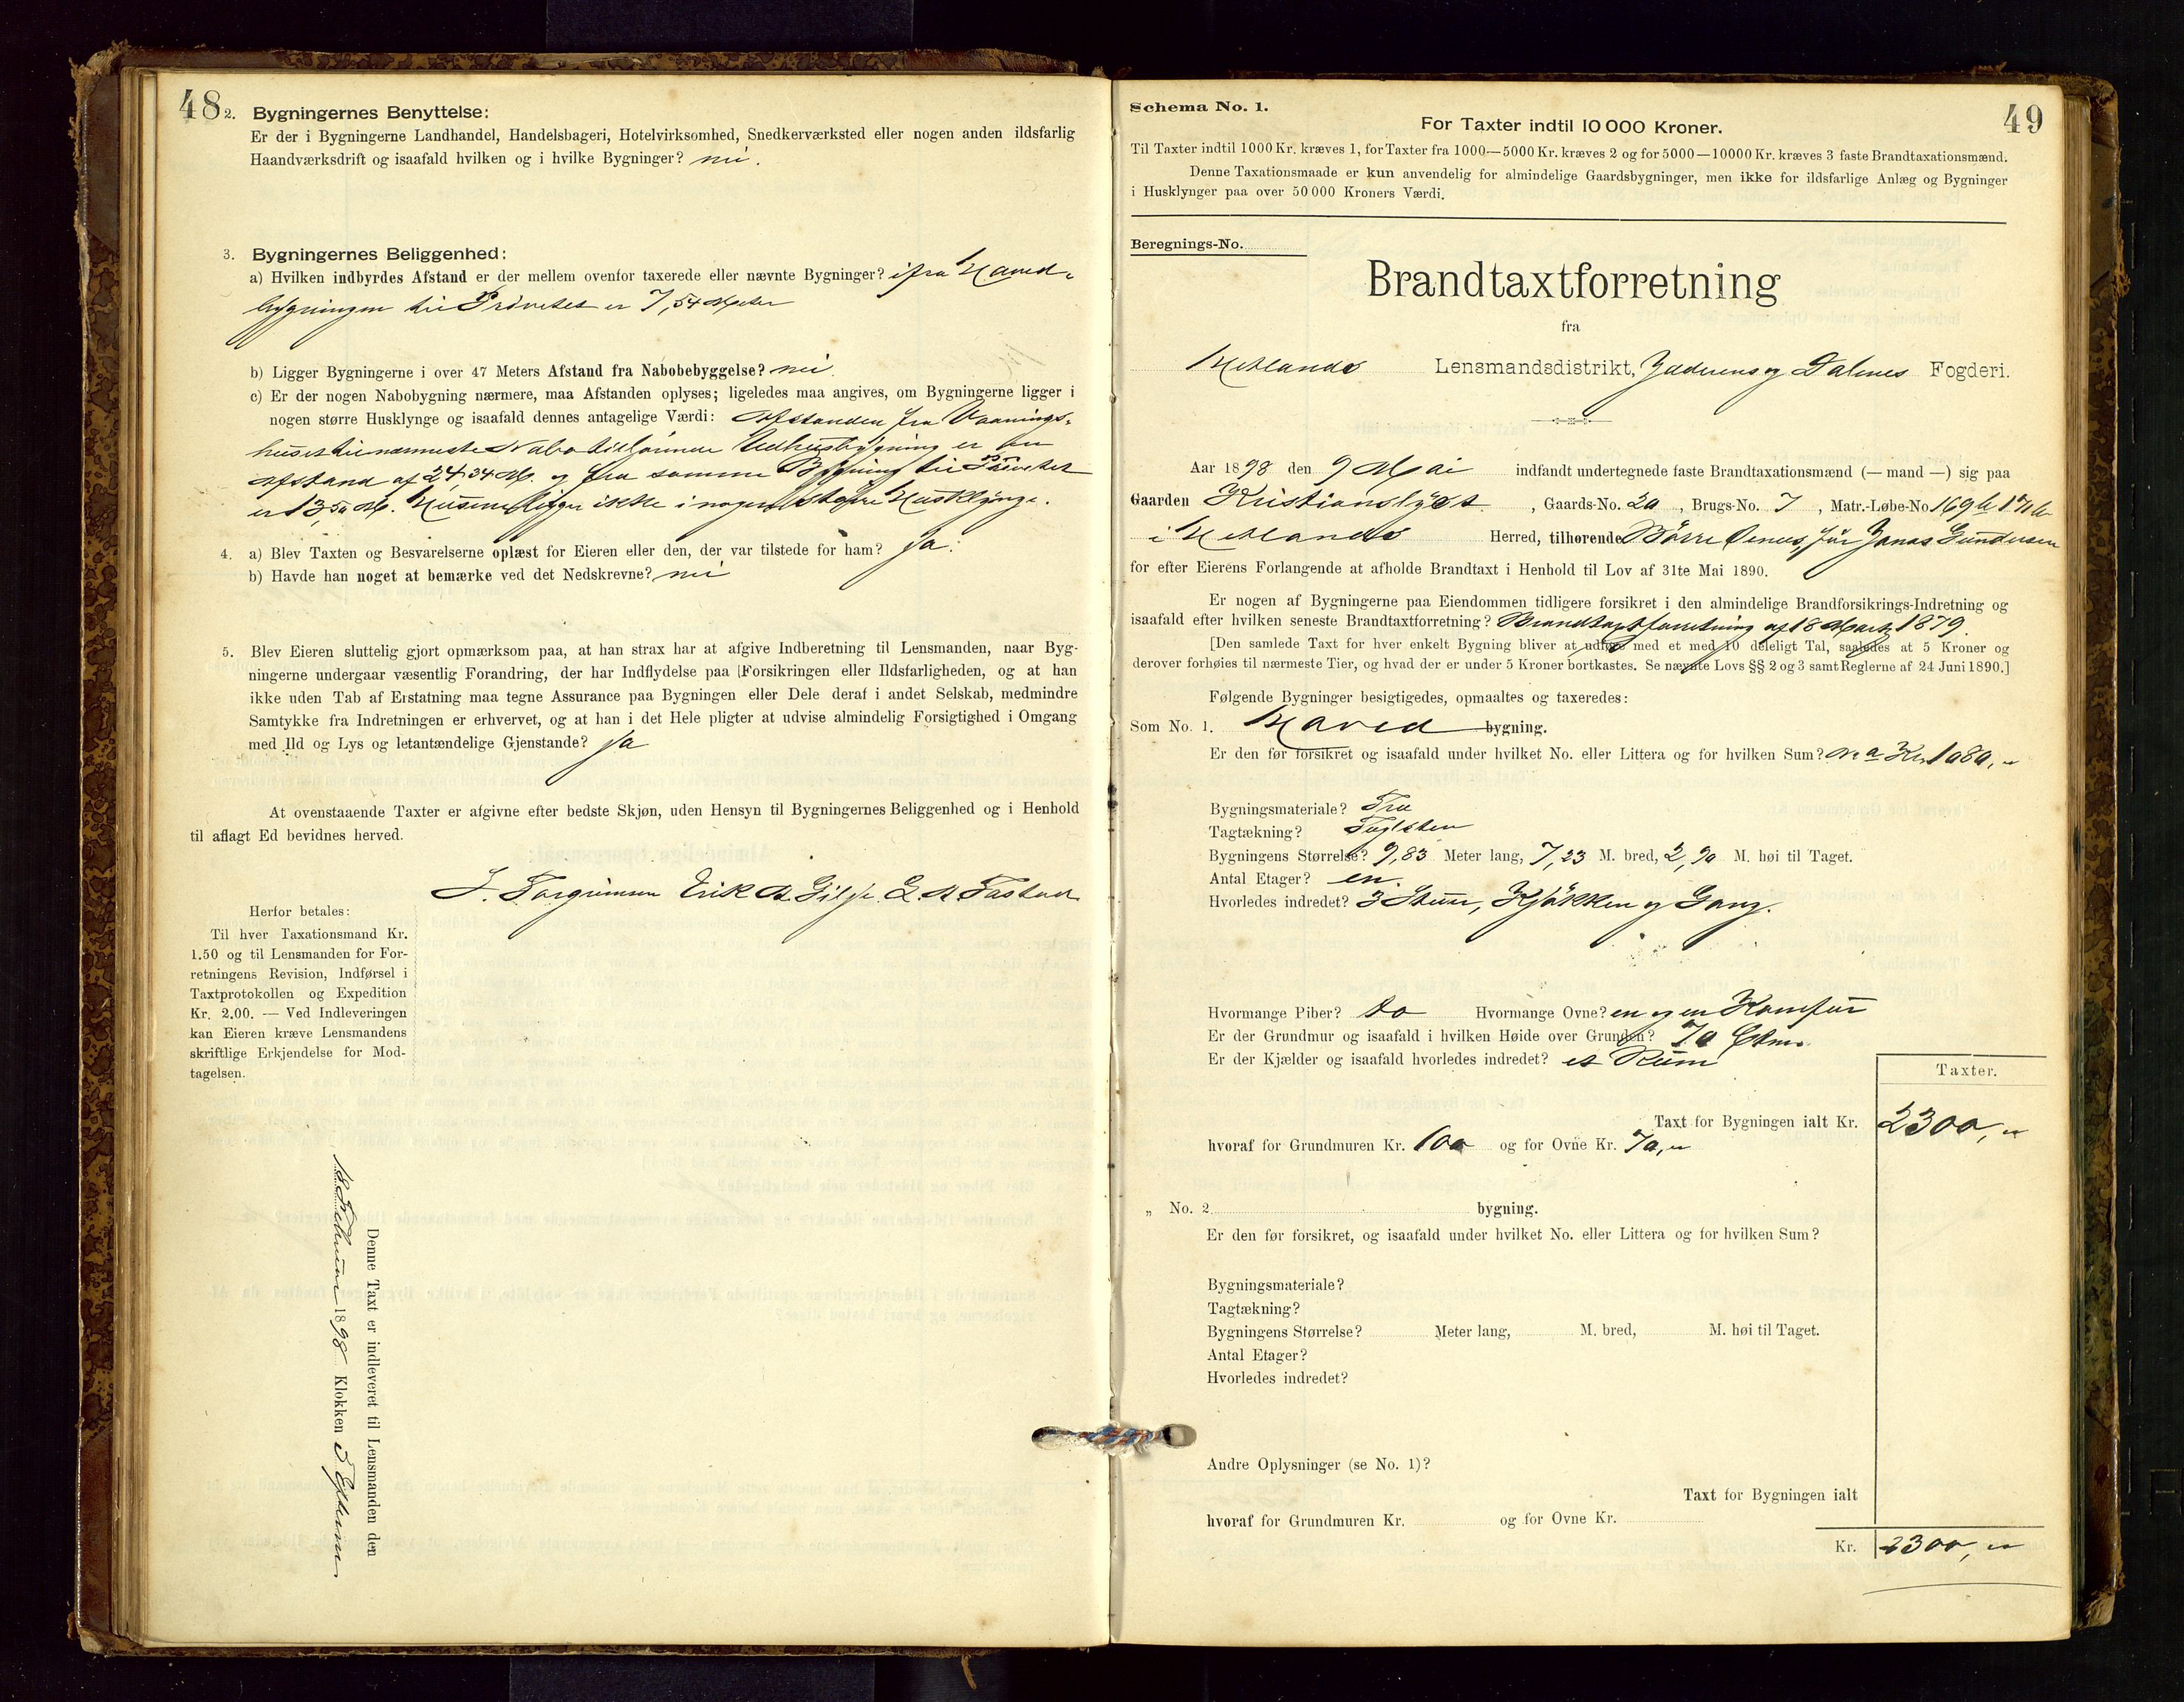 48
2. Bygningernes Benyttelse:
Er der i Bygningerne Landhandel, Handelsbageri, Hotelvirksomhed, Snedkerværksted eller nogen anden ildsfarlig
Haandværksdrift og isaafald hvilken og i hvilke Bygninger? nei.
3. Bygningernes Beliggenhed:
a) Hvilken indbyrdes Afstand er der mellem ovenfor taxerede eller nævnte Bygninger? ifra Hoved-
bygningen til Privetet er 7,54 Meter
b) Ligger Bygningerne i over 47 Meters Afstand fra Nabobebyggelse? nei.
c) Er der nogen Nabobygning nærmere, maa Afstanden oplyses; ligeledes maa angives, om Bygningerne ligger i
nogen større Husklynge og isaafald dennes antagelige Værdi: Afstanden fra Vaanings-
huset til nærmeste Nabo tilhørende Udhusbygning er en
Afstand af 24,34 M. og fra samme Bygning til Privetet
er 13,50 M. Husene ligger ikke i nogen større Husklynge.
4. a) Blev Taxten og Besvarelserne oplæst for Eieren eller den, der var tilstede for ham? ja.
b) Havde han noget at bemærke ved det Nedskrevne? nei
5. Blev Eieren sluttelig gjort opmærksom paa, at han strax har at afgive Indberetning til Lensmanden, naar Byg-
ningerne undergaar væsentlig Forandring, der har Indflydelse paa (Forsikringen eller Ildsfarligheden, og at han
ikke uden Tab af Erstatning maa tegne Assurance paa Bygningen eller Dele deraf i andet Selskab, medmindre
Samtykke fra Indretningen er erhvervet, og at han i det Hele pligter at udvise almindelig Forsigtighed i Omgang
med Ild og Lys og letantændelige Gjenstande? ja
At ovenstaaende Taxter er afgivne efter bedste Skjøn, uden Hensyn til Bygningernes Beliggenhed og i Henhold
til aflagt Ed bevidnes herved.
J. Torgrimsen Erik A Gilje. E. A Tastad
Herfor betales:
Til hver Taxationsmand Kr.
1.50 og til Lensmanden for For-
retningens Revision, Indførsel i
Taxtprotokollen og Expedition
Kr. 2.00. — Ved Indleveringen
kan Eieren kræve Lensmandens
skriftlige Erkjendelse for Mod-
tagelsen.
Denne Taxt er indleveret til Lensmanden den
18 Februar 1898 Klokken 5 Efterm
49
Schema No. 1.
For Taxter indtil 10 000 Kroner.
Til Taxter indtil 1000 Kr. kræves 1, for Taxter fra 1000—5000 Kr. kræves 2 og for 5000—10000 Kr. kræves 3 faste Brandtaxationsmænd.
Denne Taxationsmaade er kun anvendelig for almindelige Gaardsbygninger, men ikke for ildsfarlige Anlæg og Bygninger
i Husklynger paa over 50 000 Kroners Værdi.
Beregnings-No.
Brandtaxtforretning
fra
Hetlands Lensmandsdistrikt, Jæderens og Dalenes Fogderi.
Aar 1898 den 9 Mai indfandt undertegnede faste Brandtaxationsmænd (— mand —) sig paa
Gaarden Kristianslyst, Gaards-No. 20, Brugs-No. 7, Matr.-Løbe-No 169b 171b
i Hetlands Herred, tilhørende Børre Jonas Gundersen
for efter Eierens Forlangende at afholde Brandtaxt i Henhold til Lov af 31te Mai 1890.
Er nogen af Bygningerne paa Eiendommen tidligere forsikret i den almindelige Brandforsikrings-Indretning og
isaafald efter hvilken seneste Brandtaxtforretning? Brandtaxtforretning af 18 Marts 1879.
[Den samlede Taxt for hver enkelt Bygning bliver at udføre med et med 10 deleligt Tal, saaledes at 5 Kroner og
derover forhøies til nærmeste Tier, og hvad der er under 5 Kroner bortkastes. Se nævnte Lovs §§ 2 og 3 samt Reglerne af 24 Juni 1890.]
Følgende Bygninger besigtigedes, opmaaltes og taxeredes:
Som No. 1. Hoved bygning.
Er den før forsikret og isaafald under hvilket No. eller Littera og for hvilken Sum? No a Kr. 1080,"
Bygningsmateriale? Træ
Tagtækning? Teglsten
Bygningens Størrelse? 9,83 Meter lang, 7,23 M. bred, 2,90 M. høi til Taget.
Antal Etager? en.
Hvorledes indredet? 3 Stuer, Kjøkken og Gang.
Hvormange Piber? to Hvormange Ovne? en og en Komfur
Er der Grundmur og isaafald i hvilken Høide over Grunden? 70 Ctm.
Er der Kjælder og isaafald hvorledes indredet? et Rum
Taxter.
Taxt for Bygningen ialt Kr. 2300,"
hvoraf for Grundmuren Kr. 100 og for Ovne Kr. 70,"
„ No. 2 bygning.
Er den før forsikret, og isaafald under hvilket No. eller Littera og for hvilken Sum?
Bygningsmateriale?
Tagtækning?
Bygningens Størrelse? Meter lang, M. bred, M. høi til Taget.
Antal Etager?
Hvorledes indredet?
Andre Oplysninger (se No. 1)?
Taxt for Bygningen ialt
hvoraf for Grundmuren Kr. og for Ovne Kr.
Kr. 2300,"